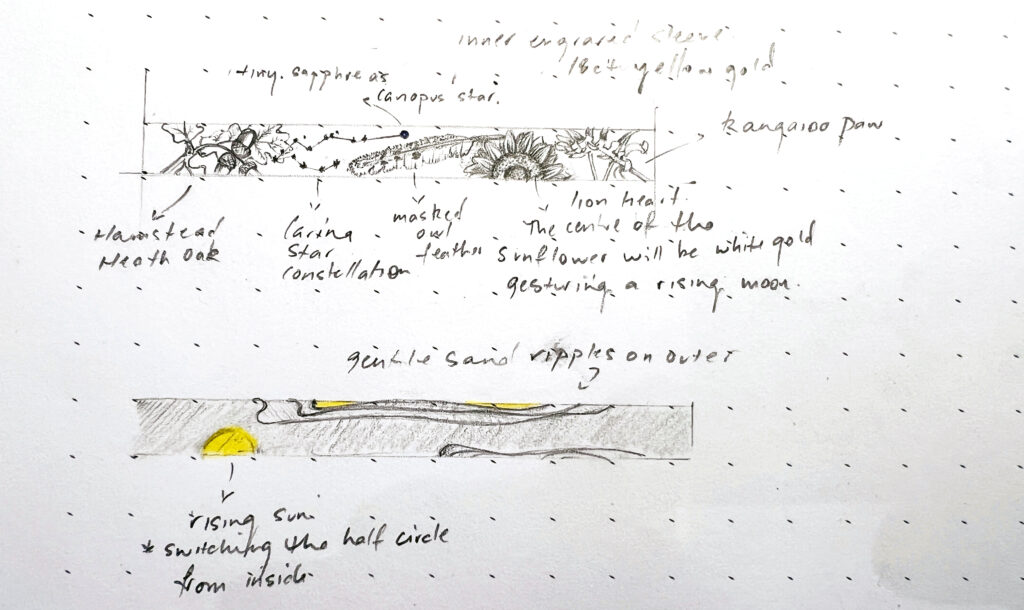 inner engraved sleeve.
18ct yellow gold
tiny sapphire as
canopus star.
kangaroo paw
Hamstead
Heath Oak
Carina
star
constellation
masked
owl
feather
lion heart.
The centre of the
sunflower will be white gold
gesturing a rising moon.
gentle sand ripples on outer
rising sun.
* switching the half circle
from inside.